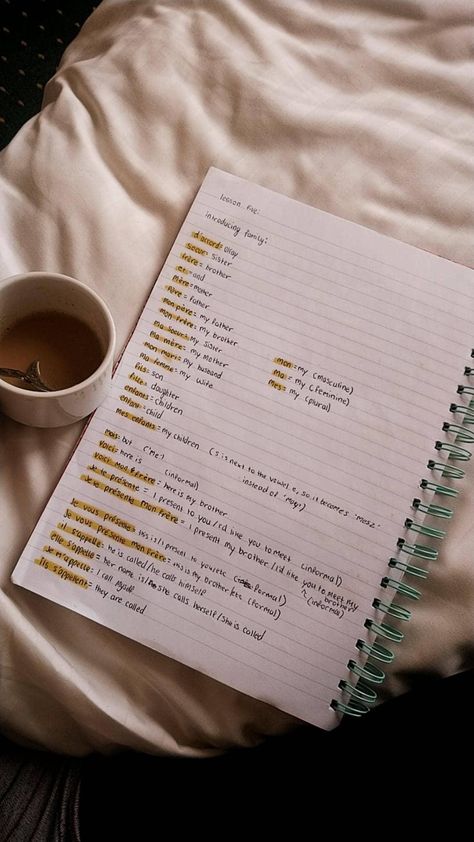 lesson five:
introducing family:
d'accord = Okay
soeur = Sister
frère = brother
et = and
mère = mother
père = father
mon père = my father
mon frère = my brother
ma soeur = my sister
ma mère = my mother
mon mari = my husband
ma femme = my wife
fils = son
fille = daughter
enfants = children
enfant = child
mes enfants = my children (s is next to the vowel e, so it becomes
instead of
mon = my (masculine)
ma = my (feminine)
mes = my (plural)
mais = but ('me')
voici = here is
voici mon frère = here is my brother
je te présente = I present to you/I'd like you to meet (informal)
je te présente mon frère = I present my brother/I'd like you to meet my brother
(informal)
je vous présente = this is/I present to you etc (formal)
je vous présente mon frère = this is my brother etc (formal)
il s'appelle = he is called/he calls himself
elle s'appelle = her name is/she calls herself/she is called
je m'appelle = I call myself
ils s'appellent = they are called